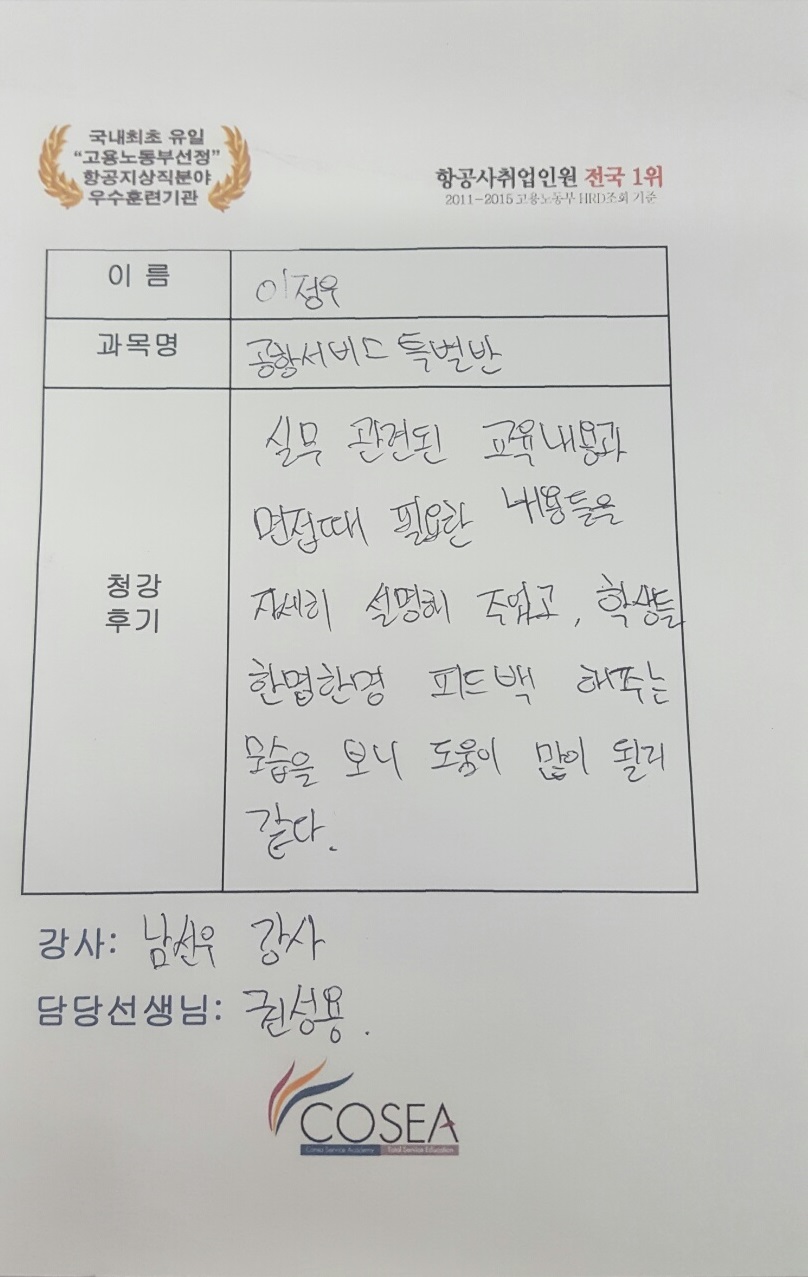 국내최초 유일
“고용노동부선정”
항공지상직분야
우수훈련기관
항공사취업인원 전국 1위
2011-2015 고용노동부 HRD조회 기준
이 름
이정우
과목명
공항서비스 특별반
청강
후기
실무 관련된 교육내용과
면접때 필요한 내용들을
자세히 설명해 주었고, 학생들
한명한명 피드백 해주는
모습을 보니 도움이 많이 될거
같다.
강사: 남선우 강사
담당선생님: 권성용.
COSEA
Cosea Service Academy Total Service Education